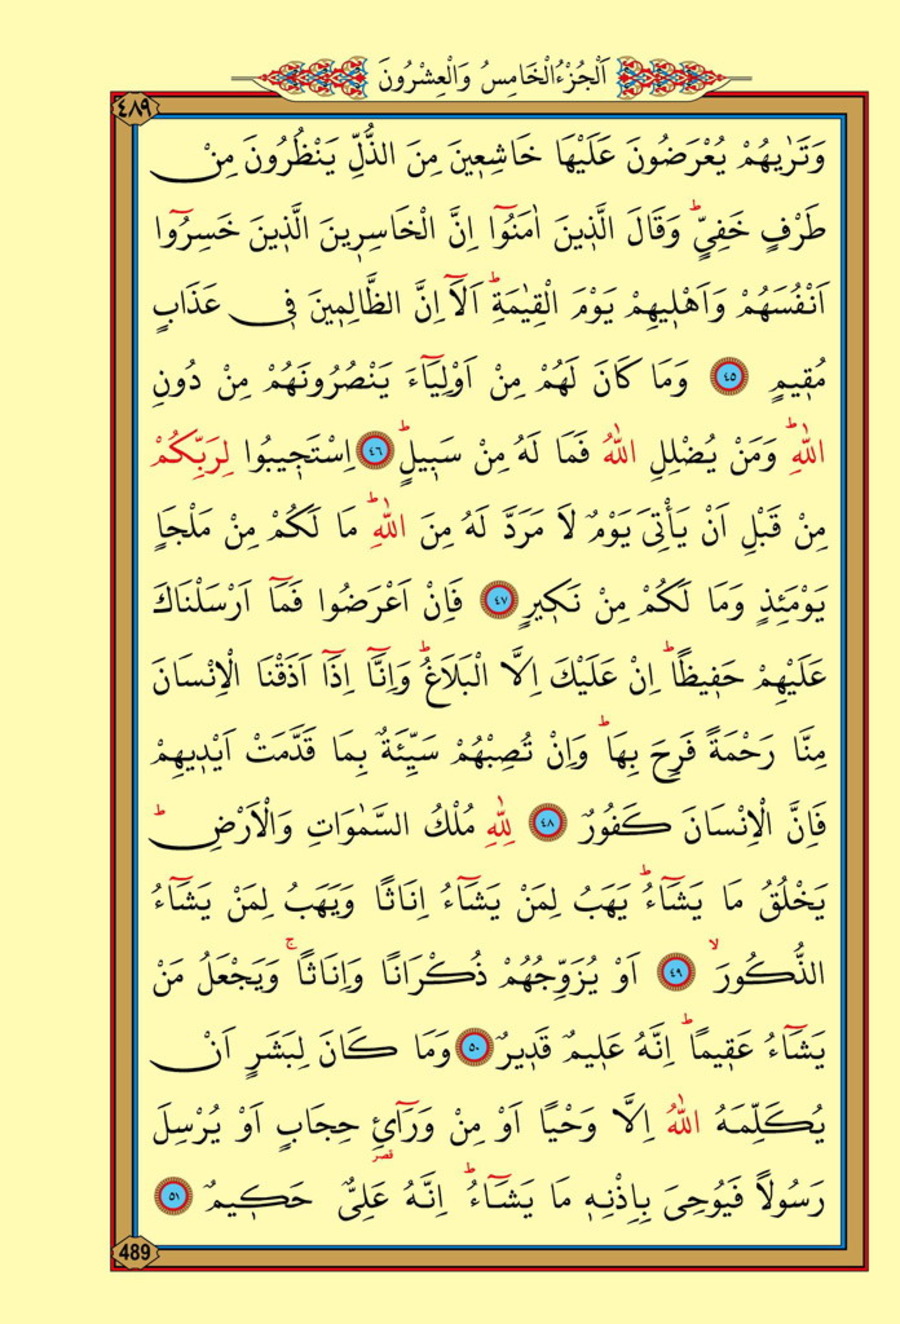 اَلْجُزْءُالْخَامِسُ وَالْعِشْرُونَ
٤٨٩
وَتَرٰيهُمْ يُعْرَضُونَ عَلَيْهَا خَاشِعٖينَ مِنَ الذُّلِّ يَنْظُرُونَ مِنْ
طَرْفٍ خَفِيٍّؕ وَقَالَ الَّذٖينَ اٰمَنُٓوا اِنَّ الْخَاسِرٖينَ الَّذٖينَ خَسِرُٓوا
اَنْفُسَهُمْ وَاَهْلٖيهِمْ يَوْمَ الْقِيٰمَةِؕ اَلَٓا اِنَّ الظَّالِمٖينَ فٖى عَذَابٍ
مُقٖيمٍ ٤٥ وَمَا كَانَ لَهُمْ مِنْ اَوْلِيَٓاءَ يَنْصُرُونَهُمْ مِنْ دُونِ
اللّٰهِؕ وَمَنْ يُضْلِلِ اللّٰهُ فَمَا لَهُ مِنْ سَبٖيلٍؕ ٤٦ اِسْتَجٖيبُوا لِرَبِّكُمْ
مِنْ قَبْلِ اَنْ يَأْتِىَ يَوْمٌ لَا مَرَدَّ لَهُ مِنَ اللّٰهِؕ مَا لَكُمْ مِنْ مَلْجَاٍ
يَوْمَئِذٍ وَمَا لَكُمْ مِنْ نَكٖيرٍ ٤٧ فَاِنْ اَعْرَضُوا فَمَٓا اَرْسَلْنَاكَ
عَلَيْهِمْ حَفٖيظًاؕ اِنْ عَلَيْكَ اِلَّا الْبَلَاغُؕ وَاِنَّٓا اِذَٓا اَذَقْنَا الْاِنْسَانَ
مِنَّا رَحْمَةً فَرِحَ بِهَاؕ وَاِنْ تُصِبْهُمْ سَيِّئَةٌ بِمَا قَدَّمَتْ اَيْدٖيهِمْ
فَاِنَّ الْاِنْسَانَ كَفُورٌ ٤٨ لِلّٰهِ مُلْكُ السَّمٰوَاتِ وَالْاَرْضِؕ
يَخْلُقُ مَا يَشَٓاءُؕ يَهَبُ لِمَنْ يَشَٓاءُ اِنَاثًا وَيَهَبُ لِمَنْ يَشَٓاءُ
الذُّكُورَۙ ٤٩ اَوْ يُزَوِّجُهُمْ ذُكْرَانًا وَاِنَاثًاۚ وَيَجْعَلُ مَنْ
يَشَٓاءُ عَقٖيمًاؕ اِنَّهُ عَلٖيمٌ قَدٖيرٌ ٥٠ وَمَا كَانَ لِبَشَرٍ اَنْ
يُكَلِّمَهُ اللّٰهُ اِلَّا وَحْيًا اَوْ مِنْ وَرَٓائِ حِجَابٍ اَوْ يُرْسِلَ
قصر
رَسُولًا فَيُوحِىَ بِاِذْنِهٖ مَا يَشَٓاءُؕ اِنَّهُ عَلِىٌّ حَكٖيمٌ ٥١
489